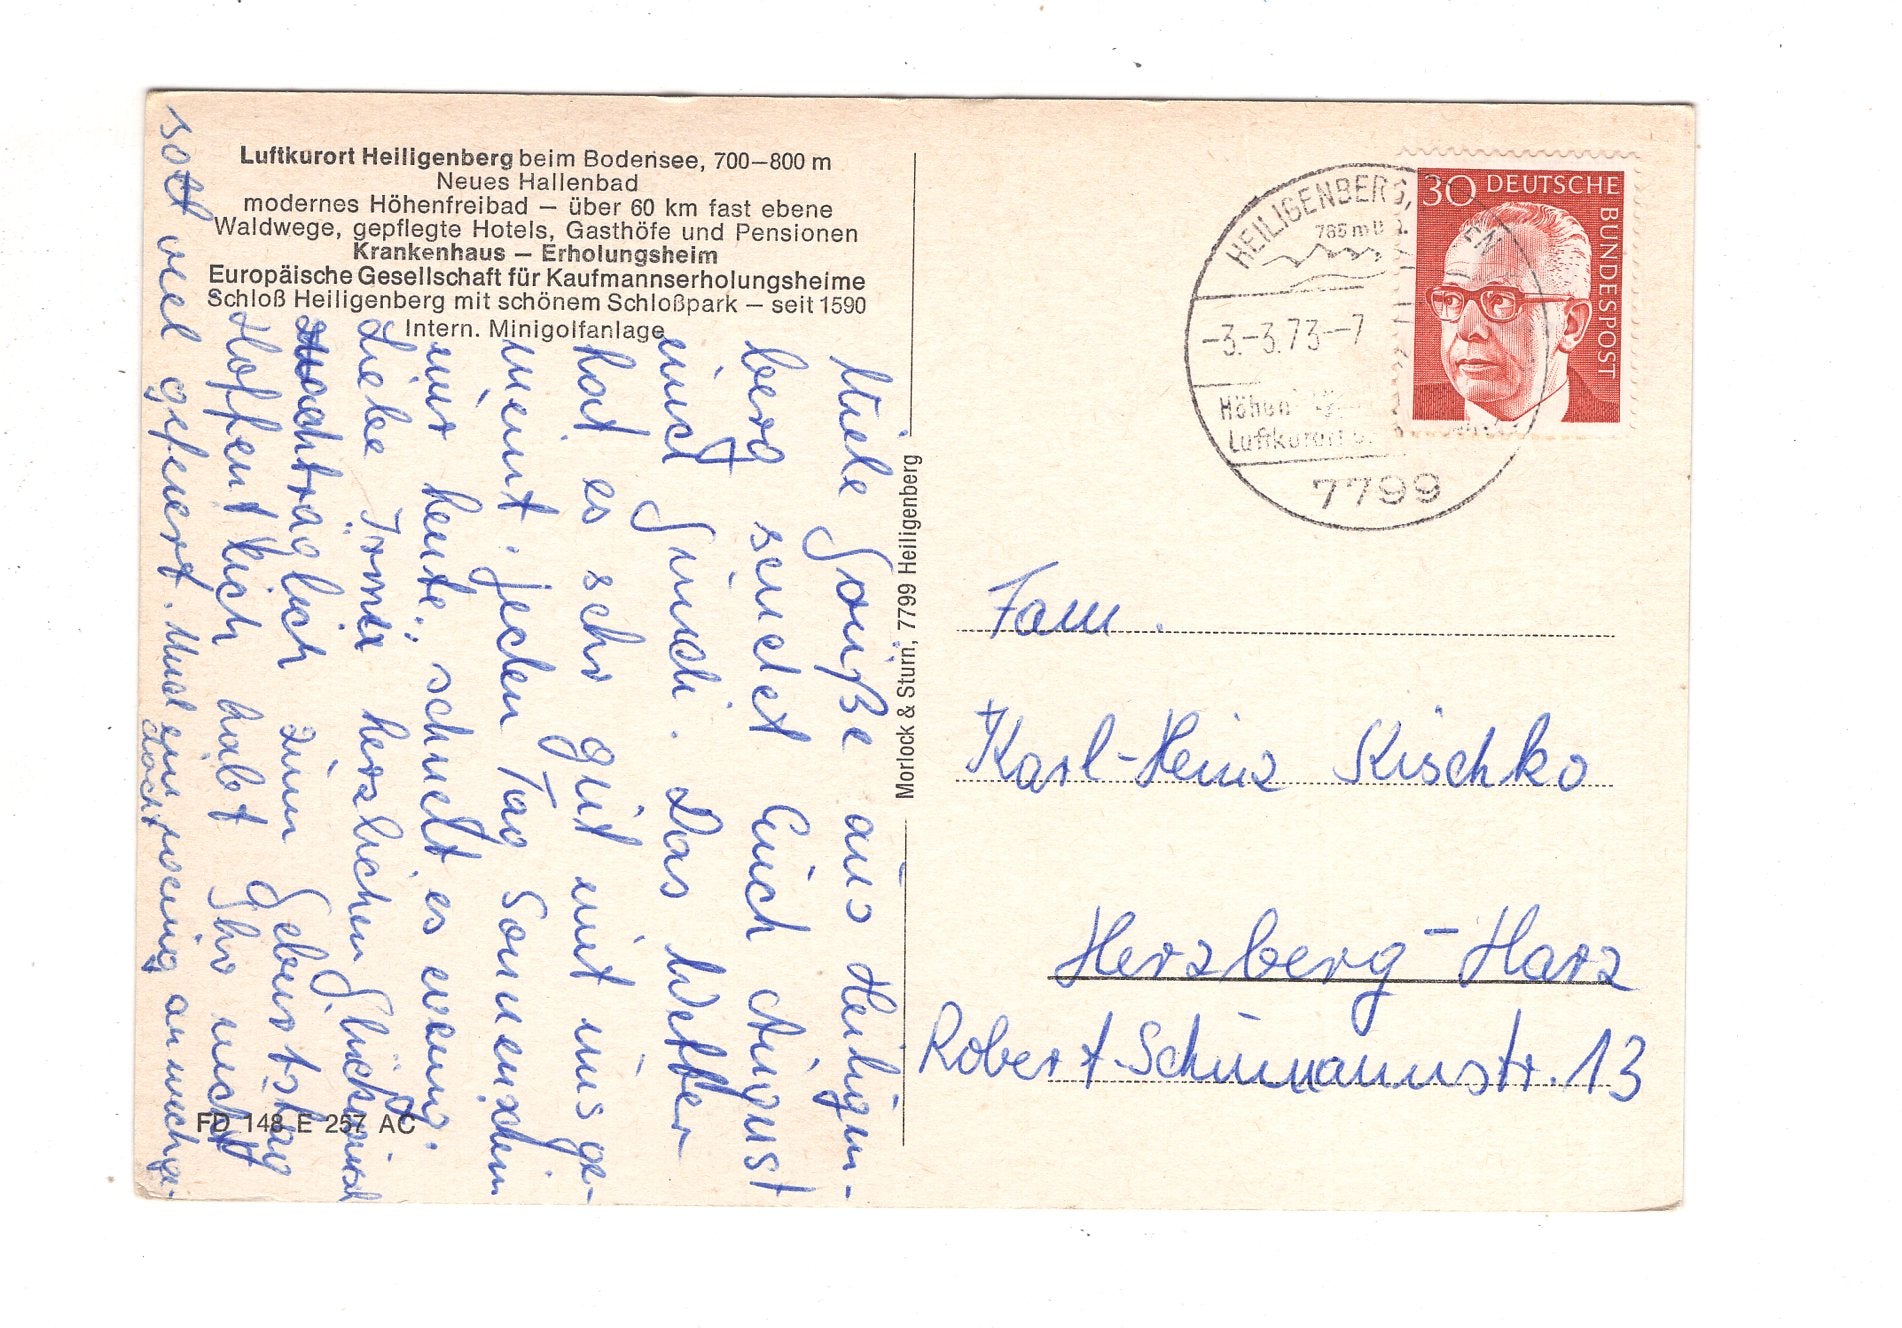 Luftkurort Heiligenberg beim Bodensee, 700–800 m
Neues Hallenbad
modernes Höhenfreibad – über 60 km fast ebene
Waldwege, gepflegte Hotels, Gasthöfe und Pensionen
Krankenhaus – Erholungsheim
Europäische Gesellschaft für Kaufmannserholungsheime
Schloß Heiligenberg mit schönem Schloßpark – seit 1590
Intern. Minigolfanlage
Viele Grüße aus Heiligen-
berg sendet Euch August
und Gundi. Das Wetter
hat es sehr gut mit uns ge-
meint. Jeden Tag Sonnenschein
nur heute schneit es wenig.
Liebe herzlichen Glückwunsch
nachträglich zum Geburtstag
Hoffentlich habt Ihr nicht
so viel gefeiert. Und ein wenig an mich ge-
dacht
FD 148 E 257 AC
Morlock & Sturn, 7799 Heiligenberg
HEILIGENBERG,
-3.-3.73--7
Höhen
Luftkurort
7799
30 DEUTSCHE
BUNDESPOST
Fam.
Karl-Heinz Kischko
Herzberg-Harz
Robert-Schumannstr. 13